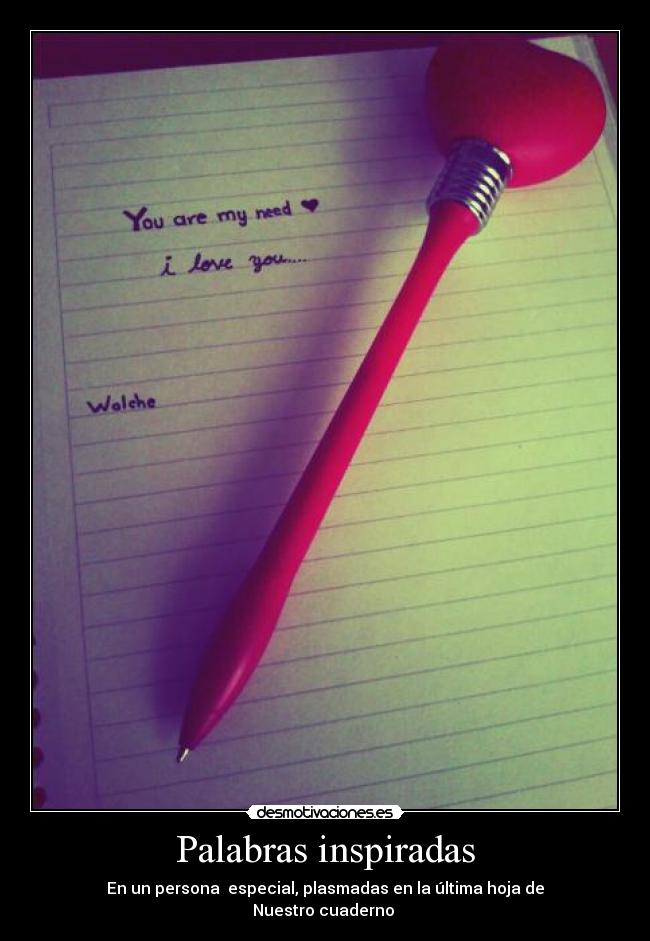 You are my need ♥
i love you....
Walche
desmotivaciones.es
Palabras inspiradas
En un persona especial, plasmadas en la última hoja de
Nuestro cuaderno